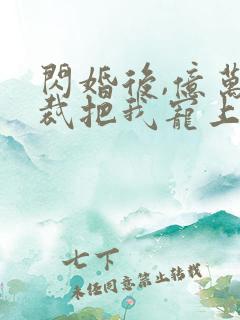 閃婚後,億萬
裁把我寵上
七下
未经同意禁止转载